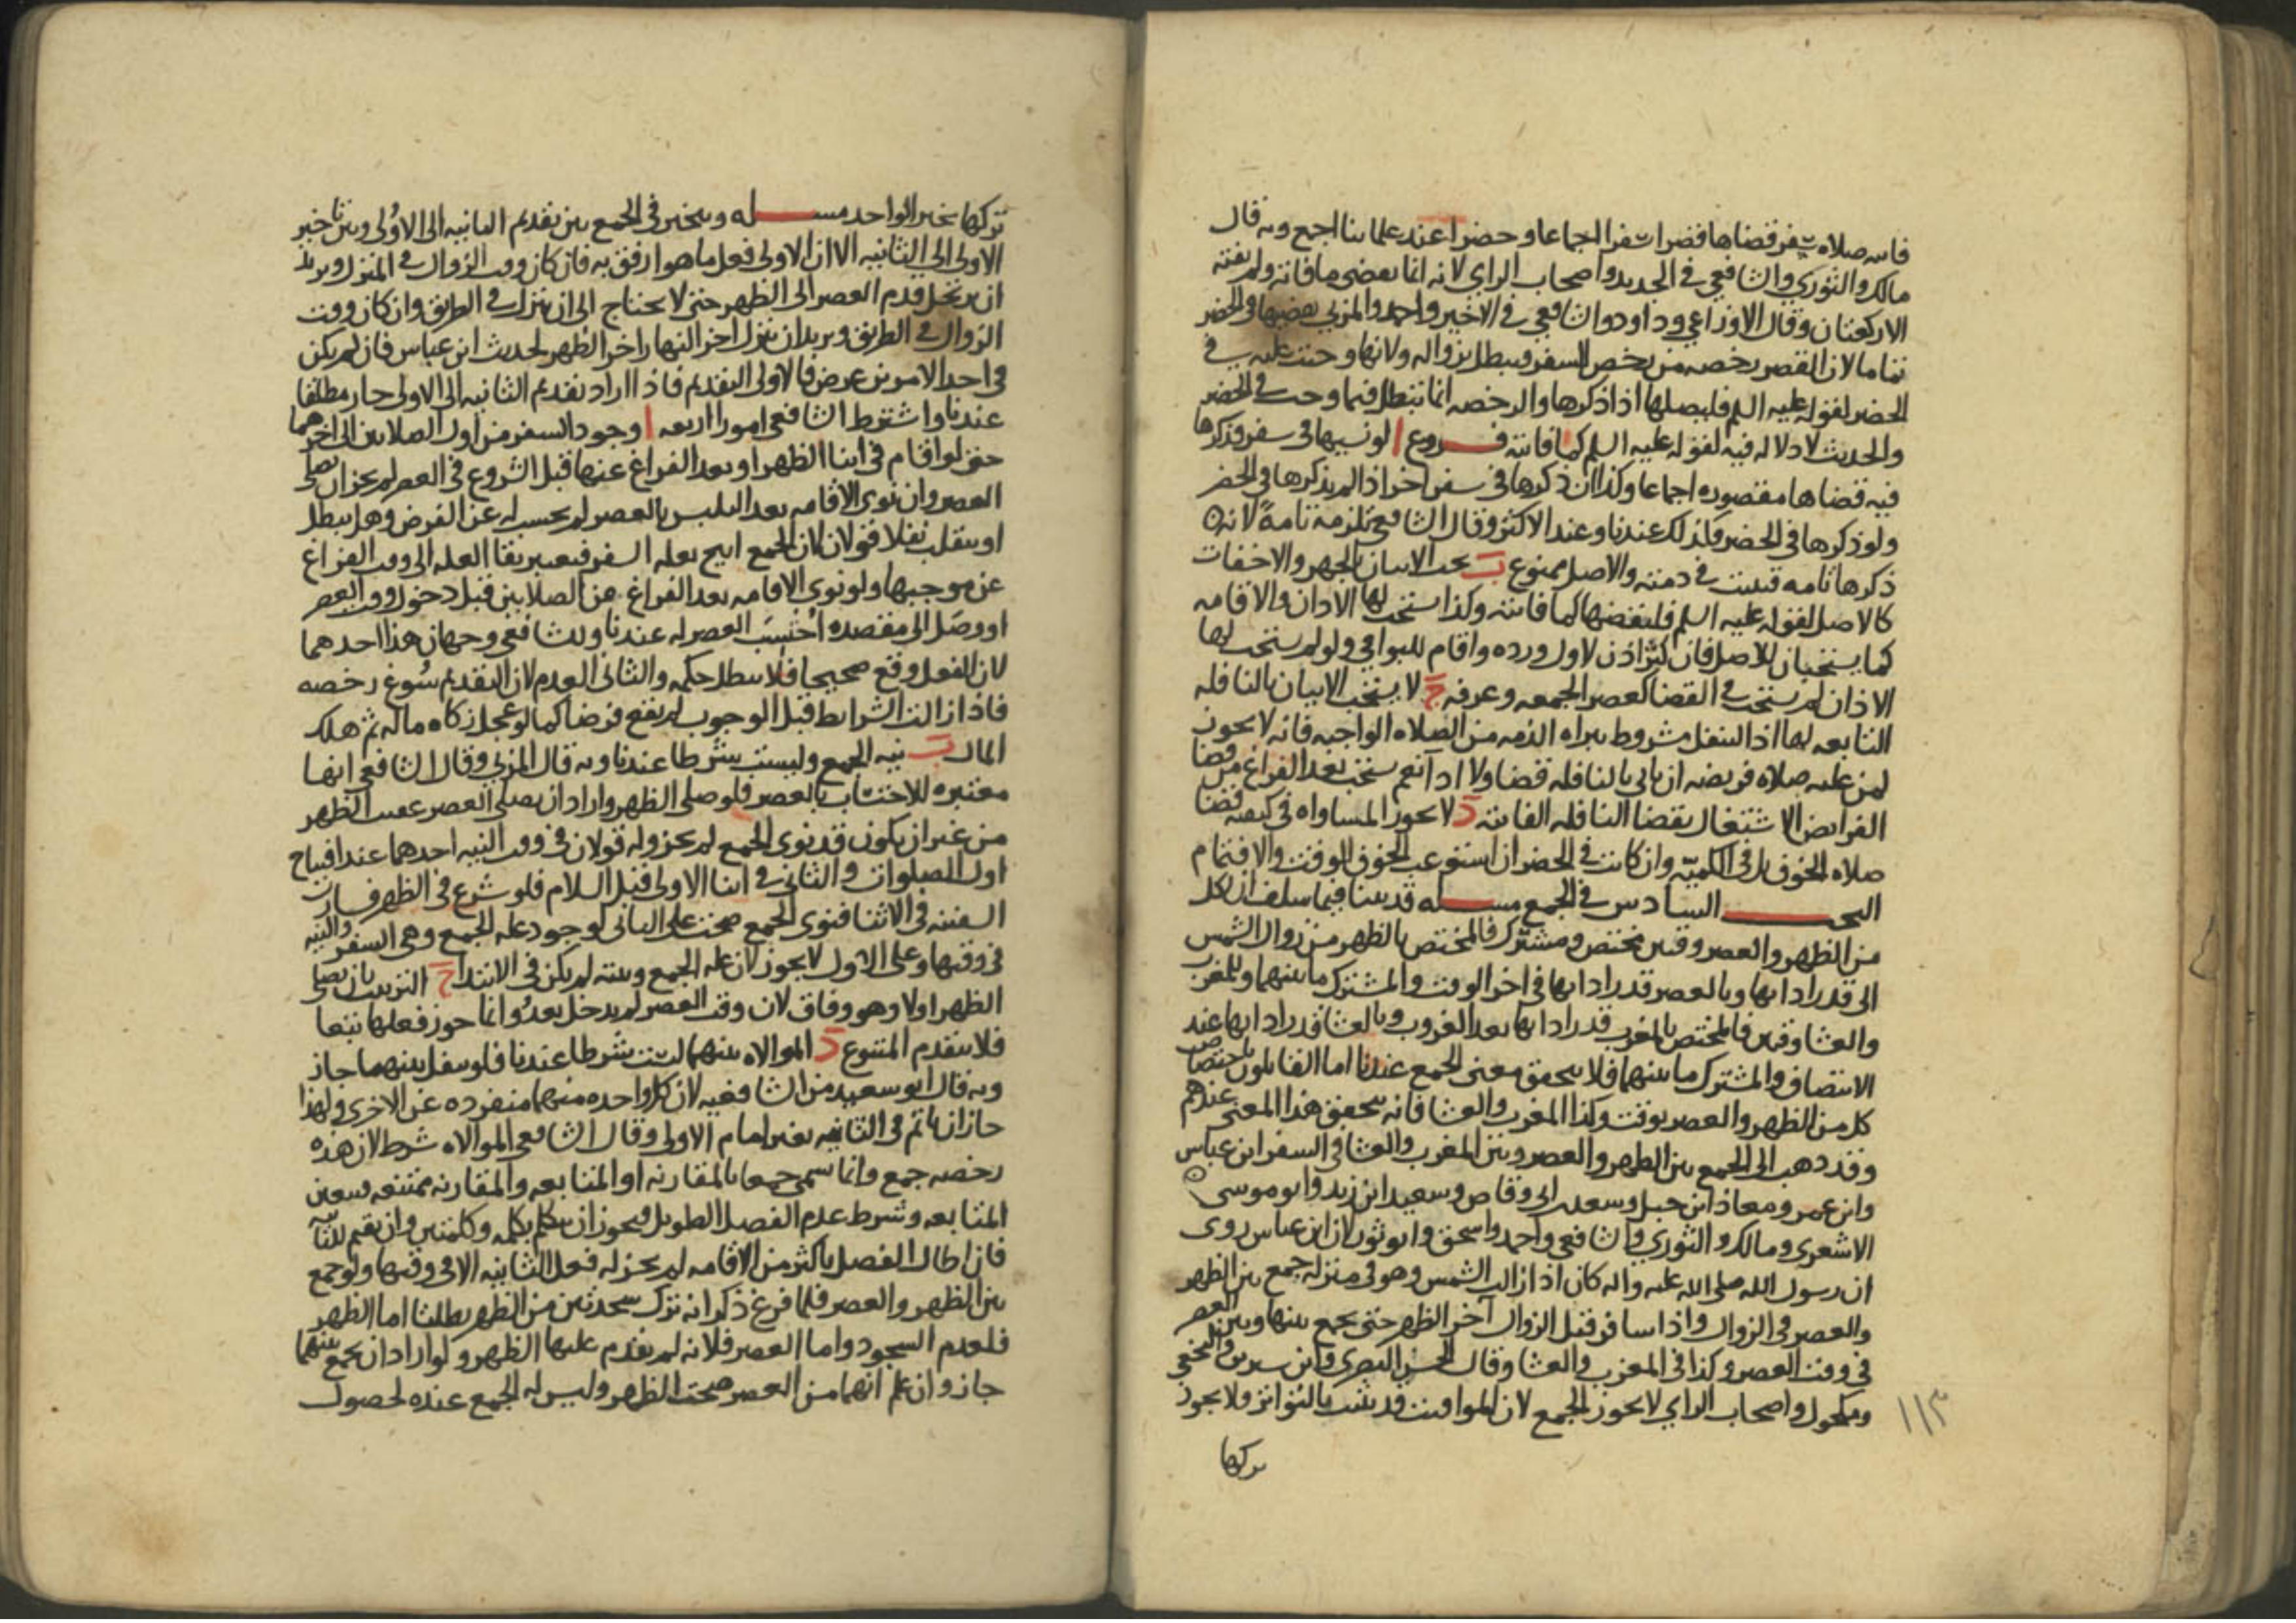 فاته صلاة سفر قضاها قصرا سفرا اجماعا وحضرا عند علمائنا اجمع وبه قال
مالك والثوري والشافعي في الجديد واصحاب الراي لانه انما يقضي ما فاته ولم يفته
الا ركعتان وقال الاوزاعي وداود والشافعي في الاخير واحمد والمزني يقضيها في الحضر
تماما لان القصر رخصه من رخص السفر فيبطل بزواله ولانها وجبت عليه في
الحضر لقوله عليه السلم فليصلها اذا ذكرها والرخصه انما تبطل فيما وجب في الحضر
والحديث لا دلاله فيه لقوله عليه السلم كما فاتته فروع ا لو نسيها في سفر وذكرها
فيه قضاها مقصوره اجماعا وكذا ان ذكرها في سفر اخر اذا لم يذكرها في الحضر
ولو ذكرها في الحضر فكذلك عندنا وعند الاكثر وقال الشافعي تلزمه تامة لانه
ذكرها تامه فتثبت في ذمته والاصل ممنوع ب يجب الاتيان بالجهر والاخفات
كالاصل لقوله عليه السلم فليقضها كما فاتته وكذا يستحب لها الاذان والاقامه
كما يستحبان للاصل فان كثر اذن لاول ورده واقام للبواقي ولو لم يستحب لها
الاذان لم يستحب في القضا كعصر الجمعه وعرفه ج لا يستحب الاتيان بالنافله
التابعه لها اذ التنفل مشروط ببراه الذمه من الصلاه الواجبه فانه لا يجوز
لمن عليه صلاه فريضه ان ياتي بالنافله قضا ولا ادا نعم يستحب بعد الفراغ من قضا
الفرايض الاشتغال بقضا النافله الفائته د لا يجوز المساواه في كيفيه قضا
صلاه الخوف بل في الكميه وان كانت في الحضر ان استوعب الخوف الوقت والا فتمام
البحث السادس في الجمع مسله قد بينا فيما سلف ان لكل
من الظهر والعصر وقتين مختص ومشترك فالمختص بالظهر من زوال الشمس
الى قدر ادائها وبالعصر قدر ادائها في اخر الوقت والمشترك ما بينهما وللمغرب
والعشا وقتين فالمختص بالمغرب قدر ادائها بعد الغروب وبالعشا قدر ادائها عند
الانتصاف والمشترك ما بينهما فلا يتحقق معنى الجمع عندنا اما القايلون باختصاص
كل من الظهر والعصر بوقت وكذا المغرب والعشا فانه يتحقق هذا المعنى عندهم
وقد ذهب الى الجمع بين الظهر والعصر وبين المغرب والعشا في السفر ابن عباس
وابن عمر ومعاذ ابن جبل وسعد ابي وقاص وسعيد ابن زيد وابو موسى
الاشعري ومالك والثوري والشافعي واحمد واسحق وابو ثور لان ابن عباس روى
ان رسول الله صلى الله عليه واله كان اذا زالت الشمس وهو في منزله جمع بين الظهر
والعصر في الزوال واذا سافر قبل الزوال آخر الظهر حتى يجمع بينها وبين العصر
في وقت العصر وكذا في المغرب والعشا وقال الحسن البصري وابن سيرين والنخعي
ومكحول واصحاب الراي لا يجوز الجمع لان المواقيت قد ثبتت بالتواتر ولا يجوز
تركها
١١٣
تركها بخبر الواحد مسله ويتخير في الجمع بين تقديم الثانيه الى الاولى وبين تاخير
الاولى الى الثانيه الا ان الاولى فعل ما هو ارفق به فان كان وقت الزوال في المنزل ويريد
ان يرتحل قدم العصر الى الظهر حتى لا يحتاج الى ان ينزل في الطريق وان كان وقت
الزوال في الطريق ويريد ان ينزل اخر النهار اخر الظهر لحديث ابن عباس فان لم يكن
في احد الامرين عرض فالاولى التقديم فاذا اراد تقديم الثانيه الى الاولى جاز مطلقا
عندنا واشترط الشافعي امورا اربعه ا وجود السفر من اول الصلاتين الى اخرهما
حتى لو اقام في اثنا الظهر او بعد الفراغ عنها قبل الشروع في العصر لم يجز ان يصلي
العصر وان نوى الاقامه بعد التلبس بالعصر لم يحسب له عن الفرض وهل يبطل
او ينقلب نفلا قولان لان الجمع ابيح بعله السفر فيعتبر بقا العله الى وقت الفراغ
عن موجبها ولو نوى الاقامه بعد الفراغ من الصلاتين قبل دخول وقت العصر
او وصل الى مقصده احتسب العصر له عندنا وللشافعي وجهان هذا احدهما
لان الفعل وقع صحيحا فلا يبطل حكمه والثاني العدم لان التقديم سوغ رخصه
فاذا زالت الشرايط قبل الوجوب لم يقع فرضا كما لو عجل زكاه ماله ثم هلك
المال ب نيه الجمع وليست شرطا عندنا وبه قال المزني وقال الشافعي انها
معتبره للاحتساب بالعصر فلو صلى الظهر واراد ان يصلي العصر عقيب الظهر
من غير ان يكون قد نوى الجمع لم يجز وله قولان في وقت النيه احدهما عند افتتاح
اول الصلوات والثاني في اثنا الاولى قبل السلام فلو شرع في الظهر فسارت
السفينه في الاثنا فنوى الجمع صحت على الثاني لوجود عله الجمع وهي السفر والنيه
في وقتها وعلى الاول لا يجوز لان عله الجمع ونيته لم يكن في الابتدا ج الترتيب بان يصلي
الظهر اولا وهو وفاق لان وقت العصر لم يدخل بعد وانما جوز فعلها تبعا
فلا يتقدم المتبوع د الموالاه بينهما ليست شرطا عندنا فلو تنفل بينهما جاز
وبه قال ابو سعيد من الشافعيه لان كل واحده منهما منفرده عن الاخرى ولهذا
جاز ان ياتم في الثانيه بغير امام الاولى وقال الشافعي الموالاه شرط لان هذه
رخصه جمع وانما سمي جمعا بالمقارنه او المتابعه والمقارنه ممتنعه فتعين
المتابعه وشرط عدم الفصل الطويل ويجوز ان يتكلم بكلمه وكلمتين وان يقيم للثانيه
فان اطال الفصل باكثر من الاقامه لم يجز له فعل الثانيه الا في وقتها ولو جمع
بين الظهر والعصر فلما فرغ ذكر انه ترك سجدتين من الظهر بطلتا اما الظهر
فلعدم السجود واما العصر فلانه لم يقدم عليها الظهر ولو اراد ان يجمع بينهما
جاز وان علم انهما من العصر صحت الظهر وليس له الجمع عنده لحصول